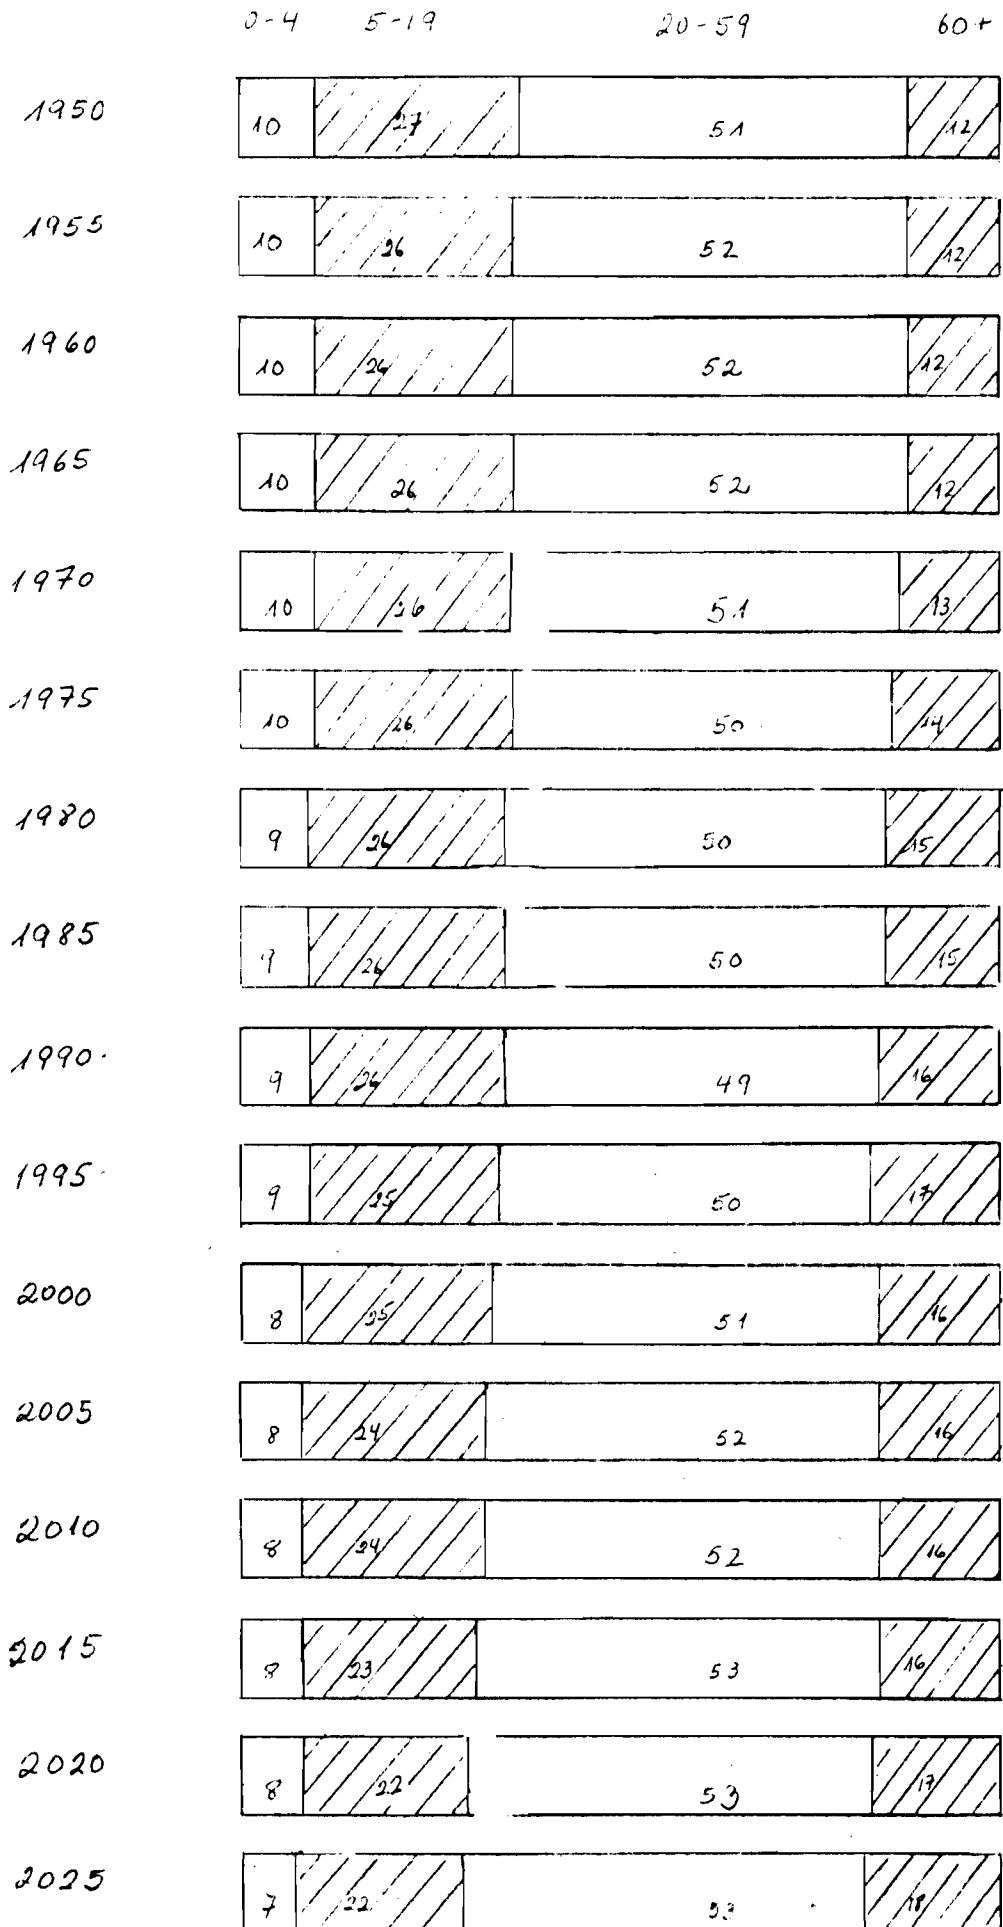 0-4 5-19 20-59 60+
1950 10 27 51 12
1955 10 26 52 12
1960 10 26 52 12
1965 10 26 52 12
1970 10 26 51 13
1975 10 26 50 14
1980 9 26 50 15
1985 9 26 50 15
1990 9 26 49 16
1995 9 25 50 17
2000 8 25 51 16
2005 8 24 52 16
2010 8 24 52 16
2015 8 23 53 16
2020 8 22 53 17
2025 7 22 53 18